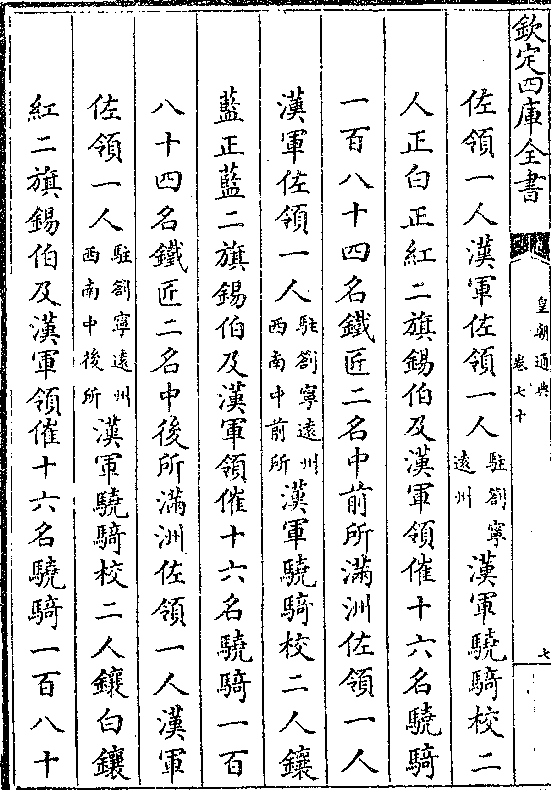 欽定四庫全書
皇朝通典
卷七十
七
佐領一人漢軍佐領一人駐劄寧遠州漢軍驍騎校二
人正白正紅二旗錫伯及漢軍領催十六名驍騎
一百八十四名鐵匠二名中前所滿洲佐領一人
漢軍佐領一人駐劄寧遠州西南中前所漢軍驍騎校二人鑲
藍正藍二旗錫伯及漢軍領催十六名驍騎一百
八十四名鐵匠二名中後所滿洲佐領一人漢軍
佐領一人駐劄寧遠州西南中後所漢軍驍騎校二人鑲白鑲
紅二旗錫伯及漢軍領催十六名驍騎一百八十